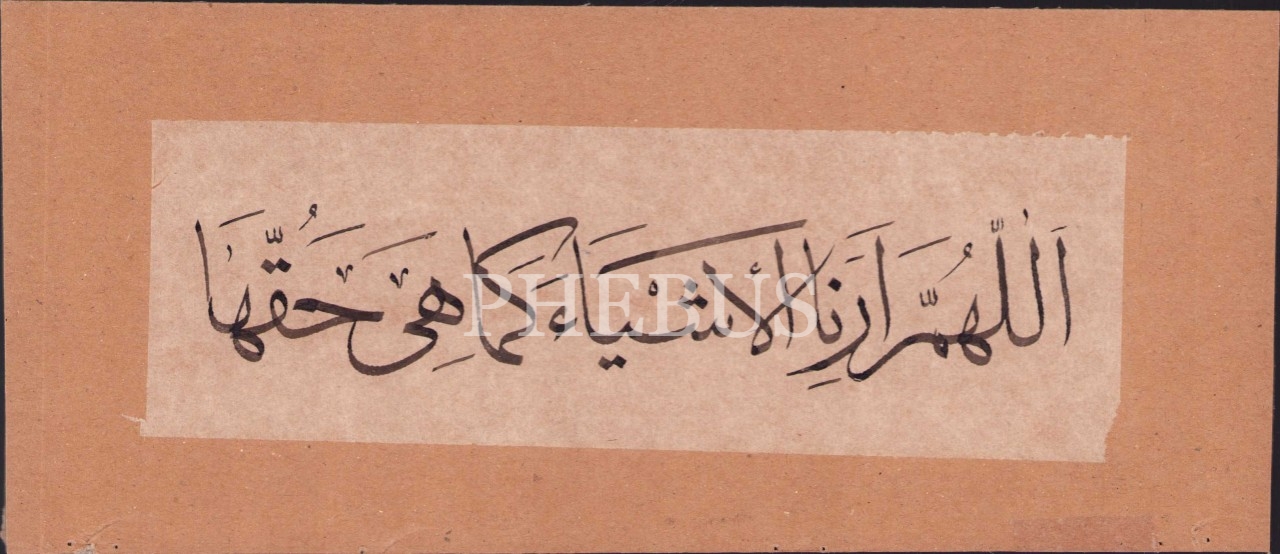 اَللّٰهُمَّ اَرِنَا الْأَشْيَاءَ كَمَا هِىَ حَقُّهَا
PHEBUS